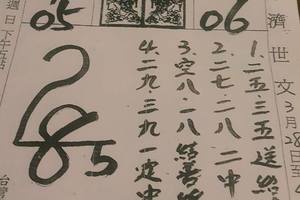 05
06
濟世文
3月28日至
1.二五.三五送給
2.二七.二八 二中
3.空八.一八結善
4.二九.三九一定中
285
週日下午
台灣